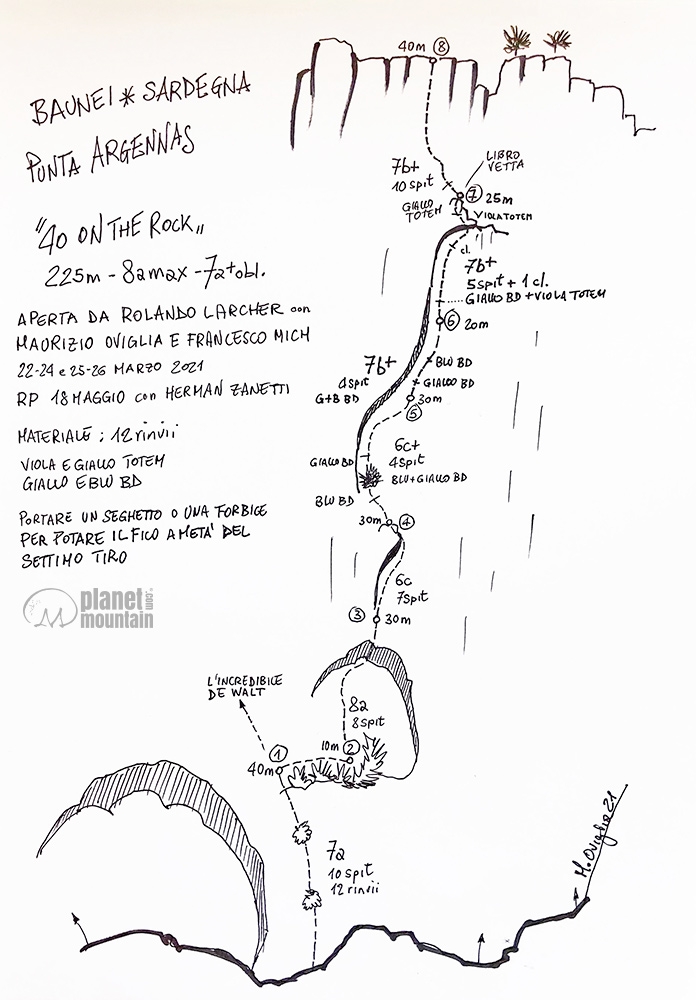 BAUNEI * SARDEGNA
PUNTA ARGENNAS
"40 ON THE ROCK"
225m - 8a max - 7a+ obl.
APERTA DA ROLANDO LARCHER con
MAURIZIO OVIGLIA E FRANCESCO MICH
22-24 e 25-26 MARZO 2021
RP 18 MAGGIO con HERMAN ZANETTI
MATERIALE ; 12 rinvii
VIOLA E GIALLO TOTEM
GIALLO E BLU BD
PORTARE UN SEGHETTO O UNA FORBICE
PER POTARE IL FICO A METÀ DEL
SETTIMO TIRO
planet
mountain
.COM
40m 8
7b+
10 spit
LIBRO
VETTA
7 25m
GIALLO
TOTEM
VIOLA TOTEM
cl.
7b+
5 spit + 1 cl.
GIALLO BD + VIOLA TOTEM
6 20m
7b+
4 spit
G+B BD
BLU BD
GIALLO BD
30m
5
6c+
4 spit
GIALLO BD
BLU + GIALLO BD
BLU BD
30m 4
6c
7 spit
3 30m
L'INCREDIBILE
DE WALT
8a
8 spit
1
10m 2
40m
7a
10 spit
12 rinvii
M. Oviglia 21